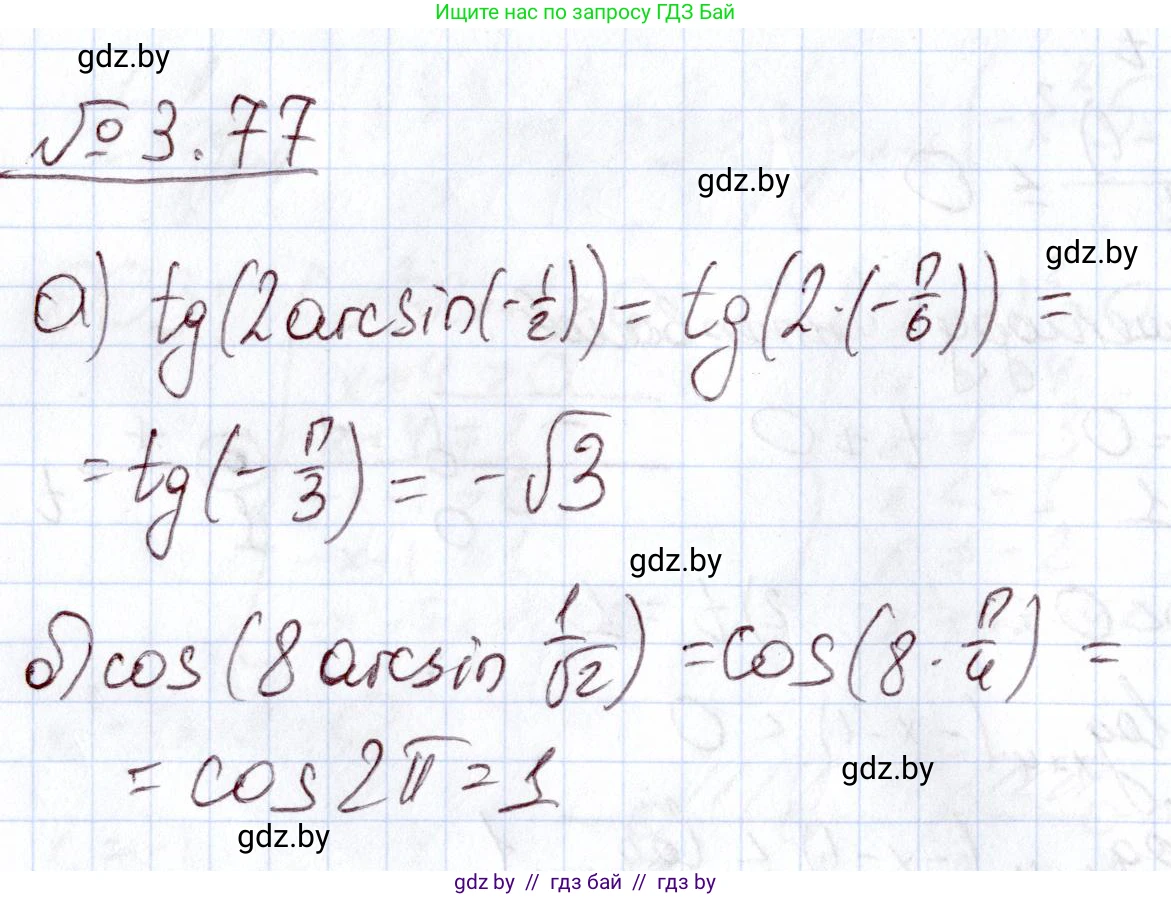 Ищите нас по запросу ГДЗ Бай
gdz.by
№ 3.77
gdz.by
gdz.by
а) tg(2arcsin(-1/2)) = tg(2·(-π/6)) =
= tg(-π/3) = -√3
gdz.by
б) cos(8 arcsin 1/√2) = cos(8·π/4) =
= cos 2π = 1
gdz.by
gdz.by
gdz by // гдз бай // гдз by